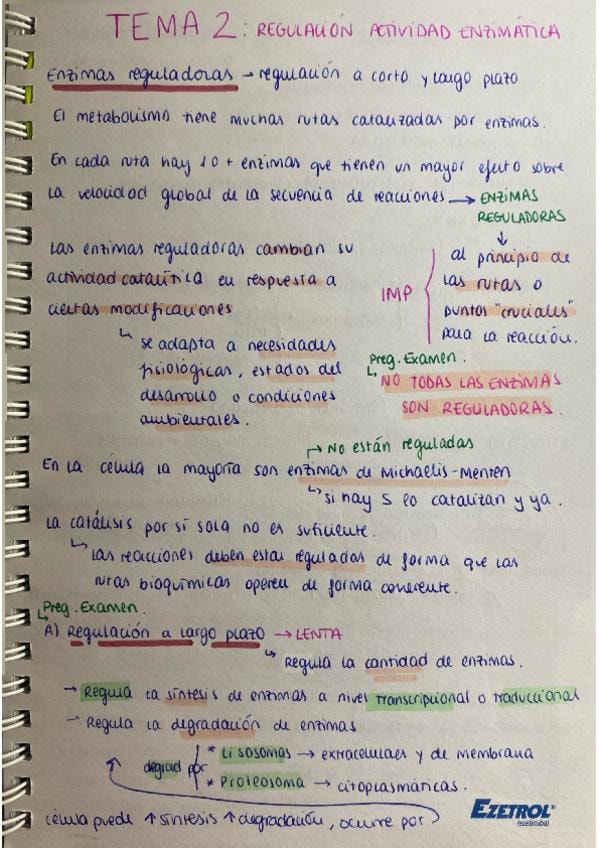 TEMA 2: REGULACIÓN ACTIVIDAD ENZIMÁTICA
Enzimas reguladoras → regulación a corto y largo plazo
El metabolismo tiene muchas rutas catalizadas por enzimas.
En cada ruta hay 1 o + enzimas que tienen un mayor efecto sobre
la velocidad global de la secuencia de reacciones → ENZIMAS
REGULADORAS
↓
Las enzimas reguladoras cambian su
actividad catalítica en respuesta a
ciertas modificaciones
IMP
al principio de
las rutas o
puntos "cruciales"
para la reacción.
↳ se adapta a necesidades
fisiológicas, estados del
desarrollo o condiciones
ambientales.
Preg. Examen.
↳ NO TODAS LAS ENZIMAS
SON REGULADORAS.
↱ No están reguladas
En la célula la mayoría son enzimas de Michaelis-Menten
↳ si hay S lo catalizan y ya.
La catálisis por sí sola no es suficiente.
↳ las reacciones deben estar reguladas de forma que las
rutas bioquímicas operen de forma coherente.
Preg. Examen.
A) Regulación a largo plazo → LENTA
↳ Regula la cantidad de enzimas.
→ Regula la síntesis de enzimas a nivel transcripcional o traduccional
→ Regula la degradación de enzimas
degrad por
* Lisosomas → extracelulaes y de membrana
* Proteosoma → citoplasmáticas.
célula puede ↑ síntesis ↑ degradación, ocurre por
EZETROL®
(ezetimiba)